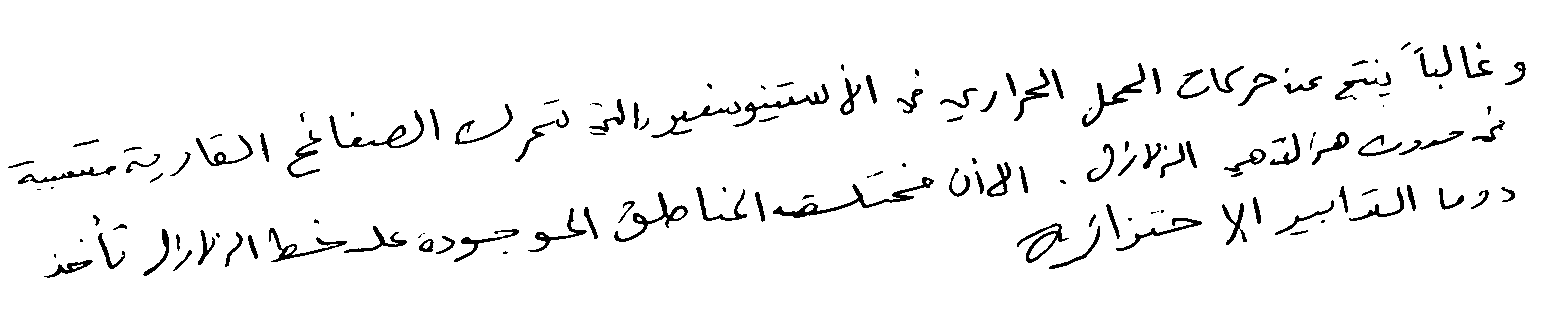 وغالباً ينتج عن حركات الحمل الحراري في الأستينوسفير والتي تحرك الصفائح القارية متسببة
في حدوث هزات هي الزلازل . الا أن مختلف المناطق الموجودة على خط الزلازل تأخذ
دوما التدابير الاحترازية